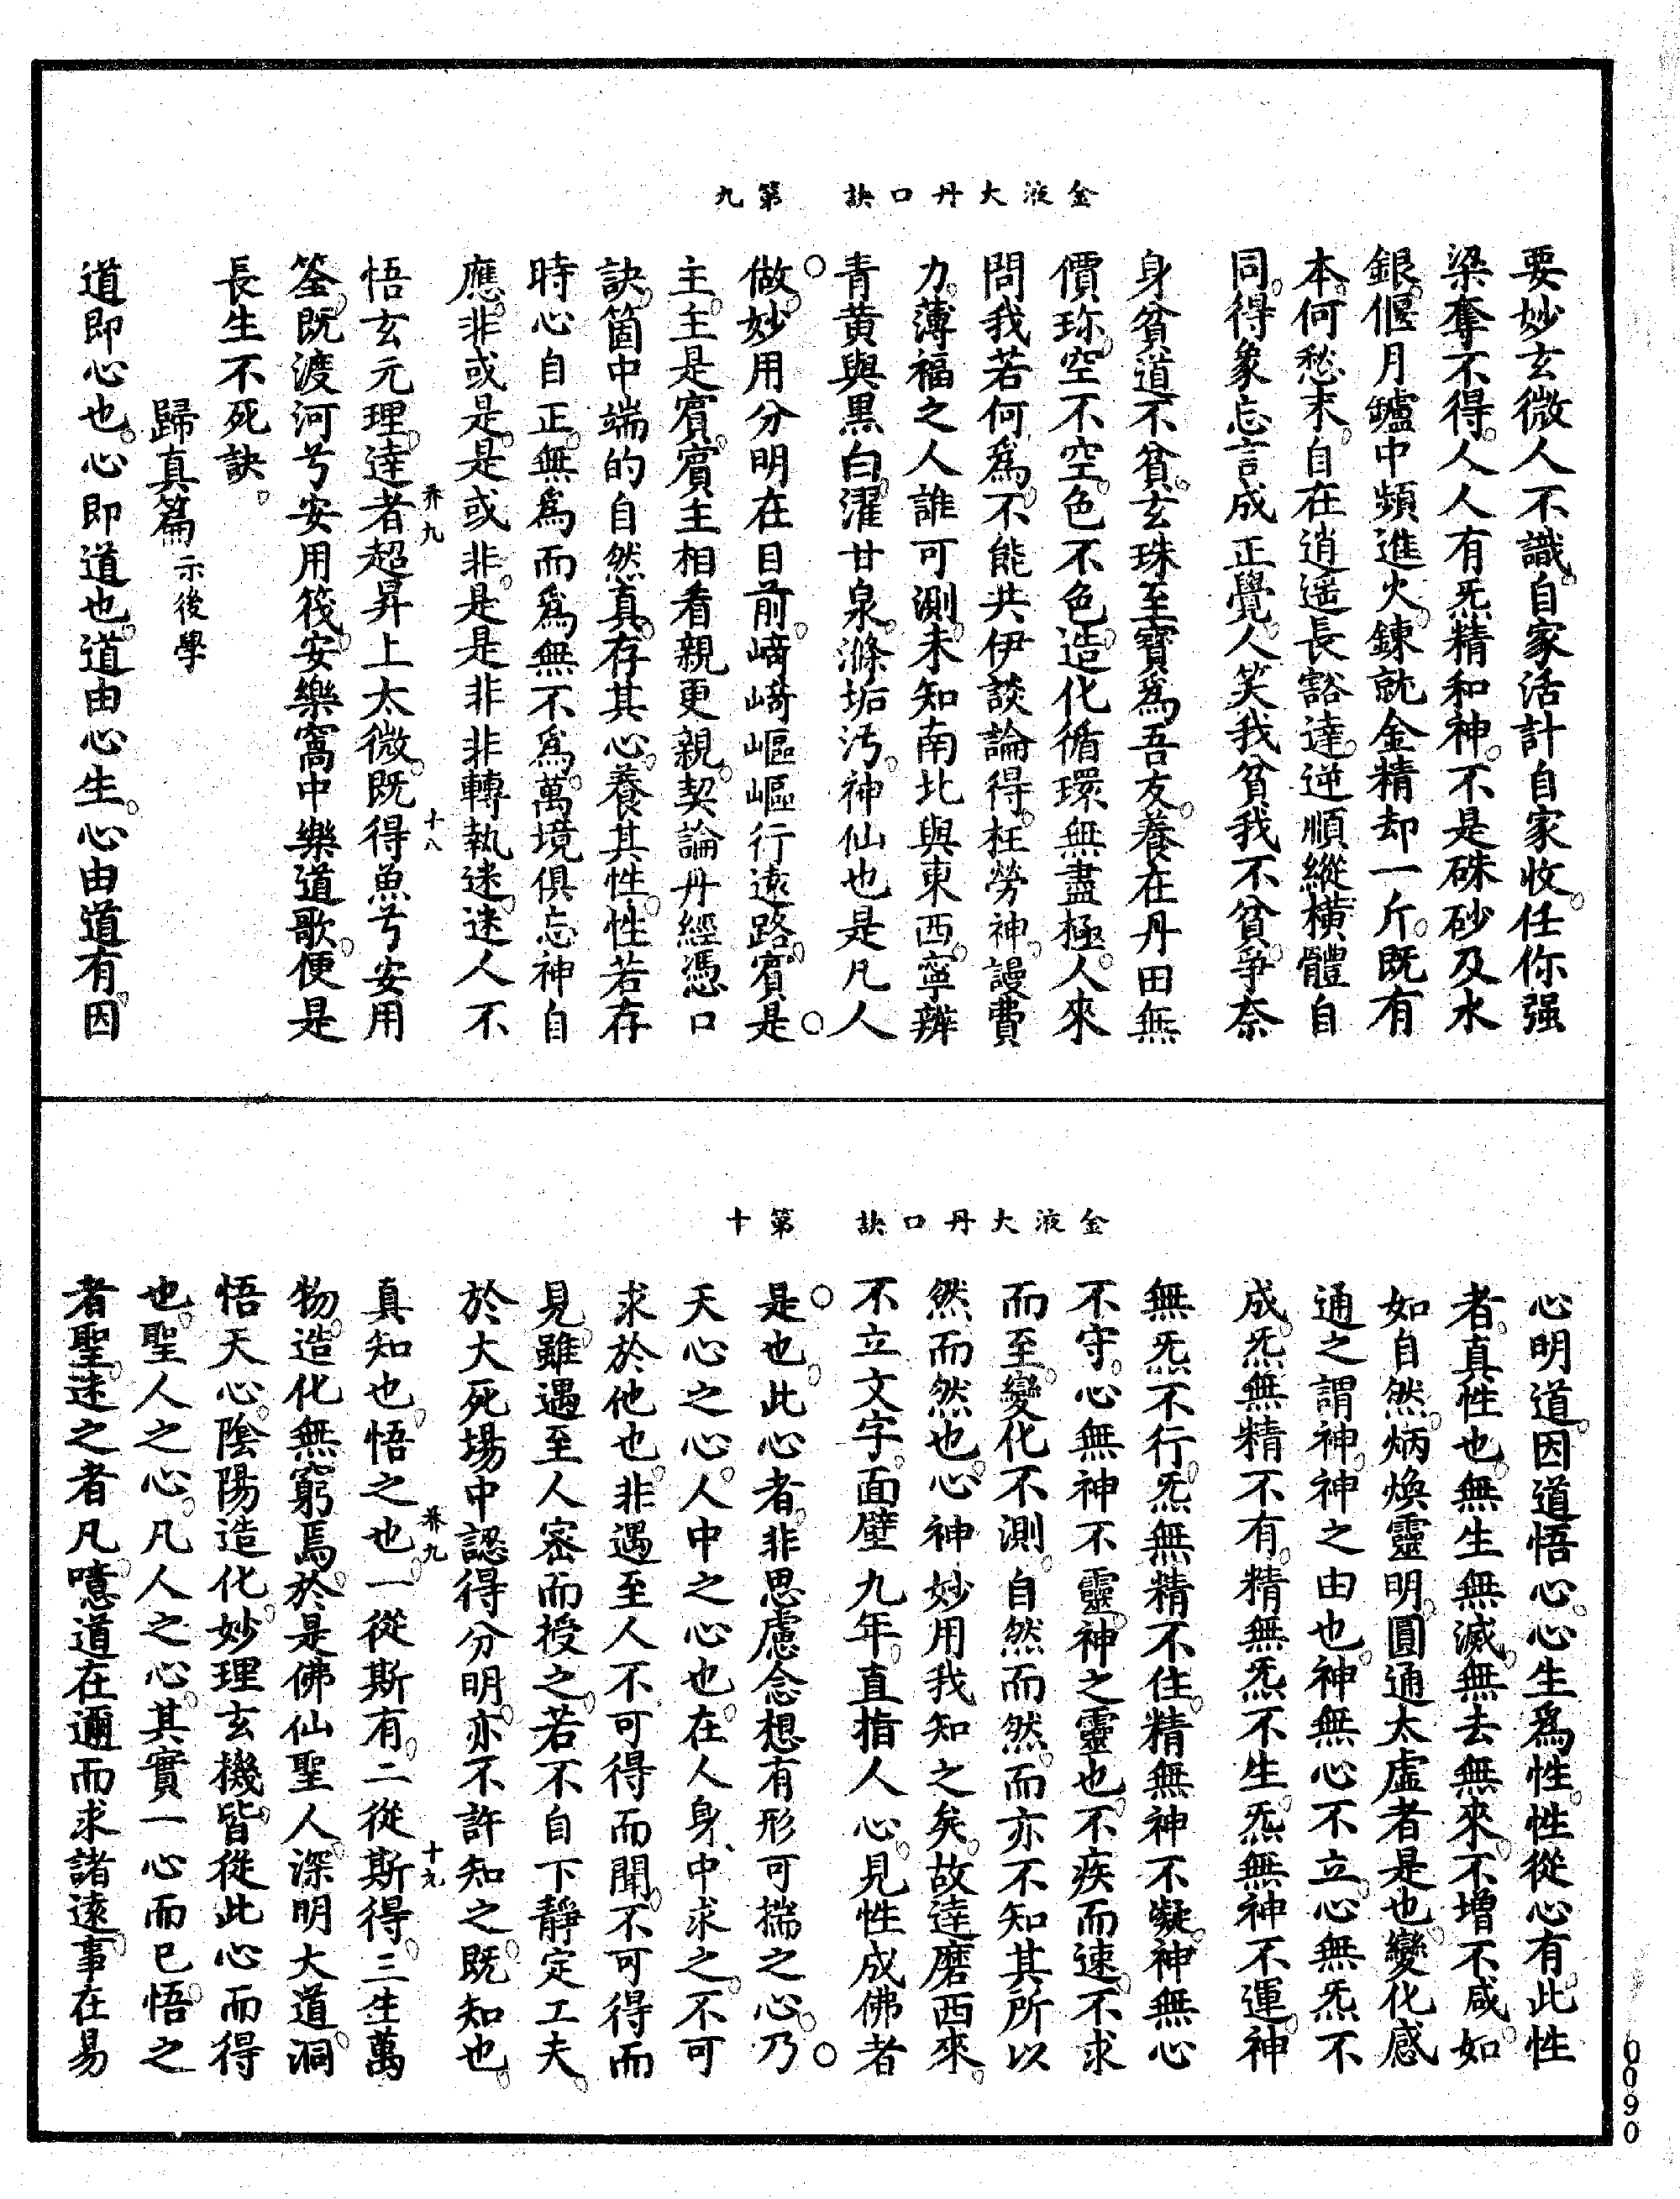 金液大丹口訣　第九
要妙玄微人不識自家活計自家收任你强
梁奪不得人人有炁精和神不是硃砂及水
銀偃月鑪中頻進火鍊就金精却一斤既有
本何愁末自在逍遥長豁達逆順縱橫體自
同得象忘言成正覺人笑我貧我不貧爭奈
身貧道不貧玄珠至寶爲吾友養在丹田無
價珎空不空色不色造化循環無盡極人來
問我若何爲不能共伊談論得枉勞神謾費
力薄福之人誰可測未知南北與東西寧辨
青黄與黑白濯甘泉滌垢汚神仙也是凡人
做妙用分明在目前﨑﨑嶇嶇行遠路賓是
主主是賓賓主相看親更親契論丹經憑口
訣箇中端的自然真存其心養其性性若存
時心自正無爲而爲無不爲萬境俱忘神自
應非或是是或非是是非非轉執迷迷人不
养九　十八
悟玄元理達者超昇上太微既得魚兮安用
筌既渡河兮安用筏安樂窩中樂道歌便是
長生不死訣
歸真篇示後學
道即心也心即道也道由心生心由道有因
金液大丹口訣　第十
心明道因道悟心心生爲性性從心有此性
者真性也無生無滅無去無來不增不減如
如自然炳煥靈明圓通太虛者是也變化感
通之謂神神之由也神無心不立心無炁不
成炁無精不有精無炁不生炁無神不運神
無炁不行炁無精不住精無神不凝神無心
不守心無神不靈神之靈也不疾而速不求
而至變化不測自然而然而亦不知其所以
然而然也心神妙用我知之矣故達磨西來
不立文字面壁九年直指人心見性成佛者
是也此心者非思慮念想有形可揣之心乃
天心之心人中之心也在人身中求之不可
求於他也非遇至人不可得而聞不可得而
見雖遇至人密而授之若不自下靜定工夫
於大死場中認得分明亦不許知之既知也
养九　十九
真知也悟之也一從斯有二從斯得三生萬
物造化無窮焉於是佛仙聖人深明大道洞
悟天心陰陽造化妙理玄機皆從此心而得
也聖人之心凡人之心其實一心而已悟之
者聖迷之者凡噫道在邇而求諸遠事在易
0090